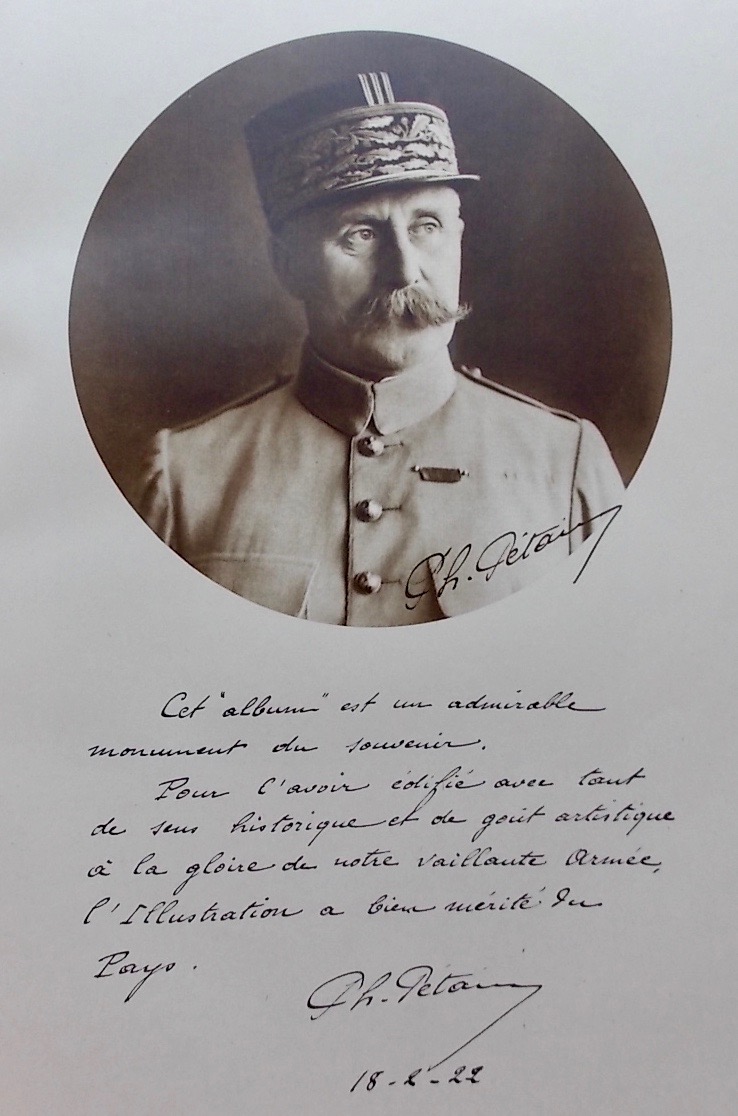 Ph. Pétain
Cet "album" est un admirable
monument du souvenir.
Pour l'avoir édifié avec tant
de sens historique et de goût artistique
à la gloire de notre vaillante Armée,
l'Illustration a bien mérité du
Pays.
Ph. Pétain
18-2-22